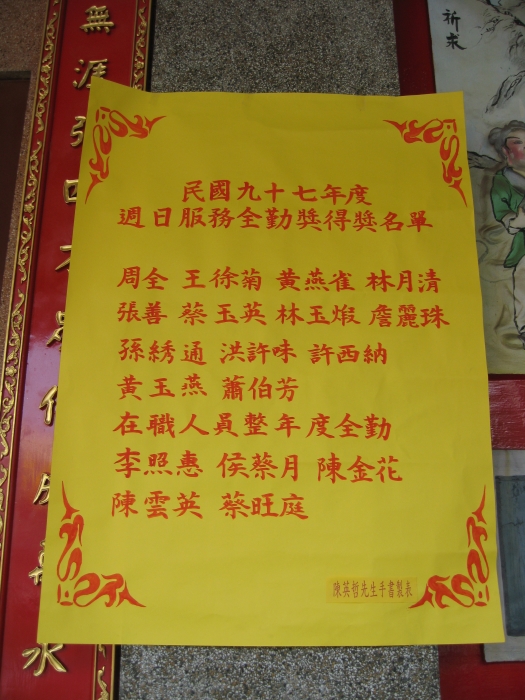 民國九十七年度
週日服務全勤獎得獎名單
周全 王徐菊 黃燕雀 林月清
張善 蔡玉英 林玉煅 詹麗珠
孫綉通 洪許味 許西納
黃玉燕 蕭伯芳
在職人員整年度全勤
李照惠 侯蔡月 陳金花
陳雲英 蔡旺庭
陳英哲先生手書製表
祈求
無涯
水